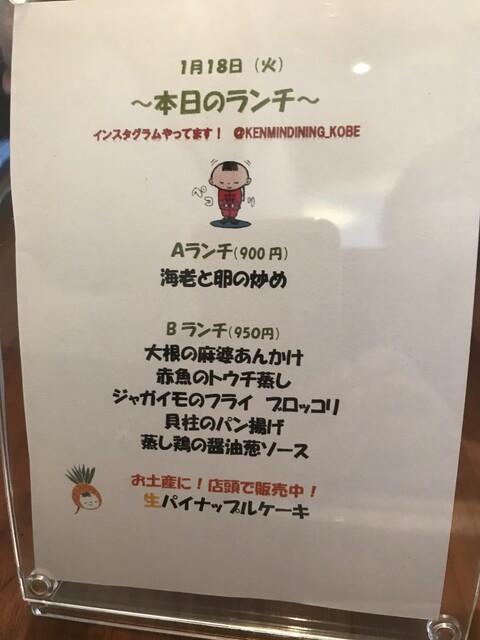 1月18日（火）
～本日のランチ～
インスタグラムやってます！ @KENMINDINING_KOBE
ペコリ
Aランチ(900円)
海老と卵の炒め
Bランチ(950円)
大根の麻婆あんかけ
赤魚のトウチ蒸し
ジャガイモのフライ ブロッコリ
貝柱のパン揚げ
蒸し鶏の醤油葱ソース
お土産に！店頭で販売中！
生パイナップルケーキ